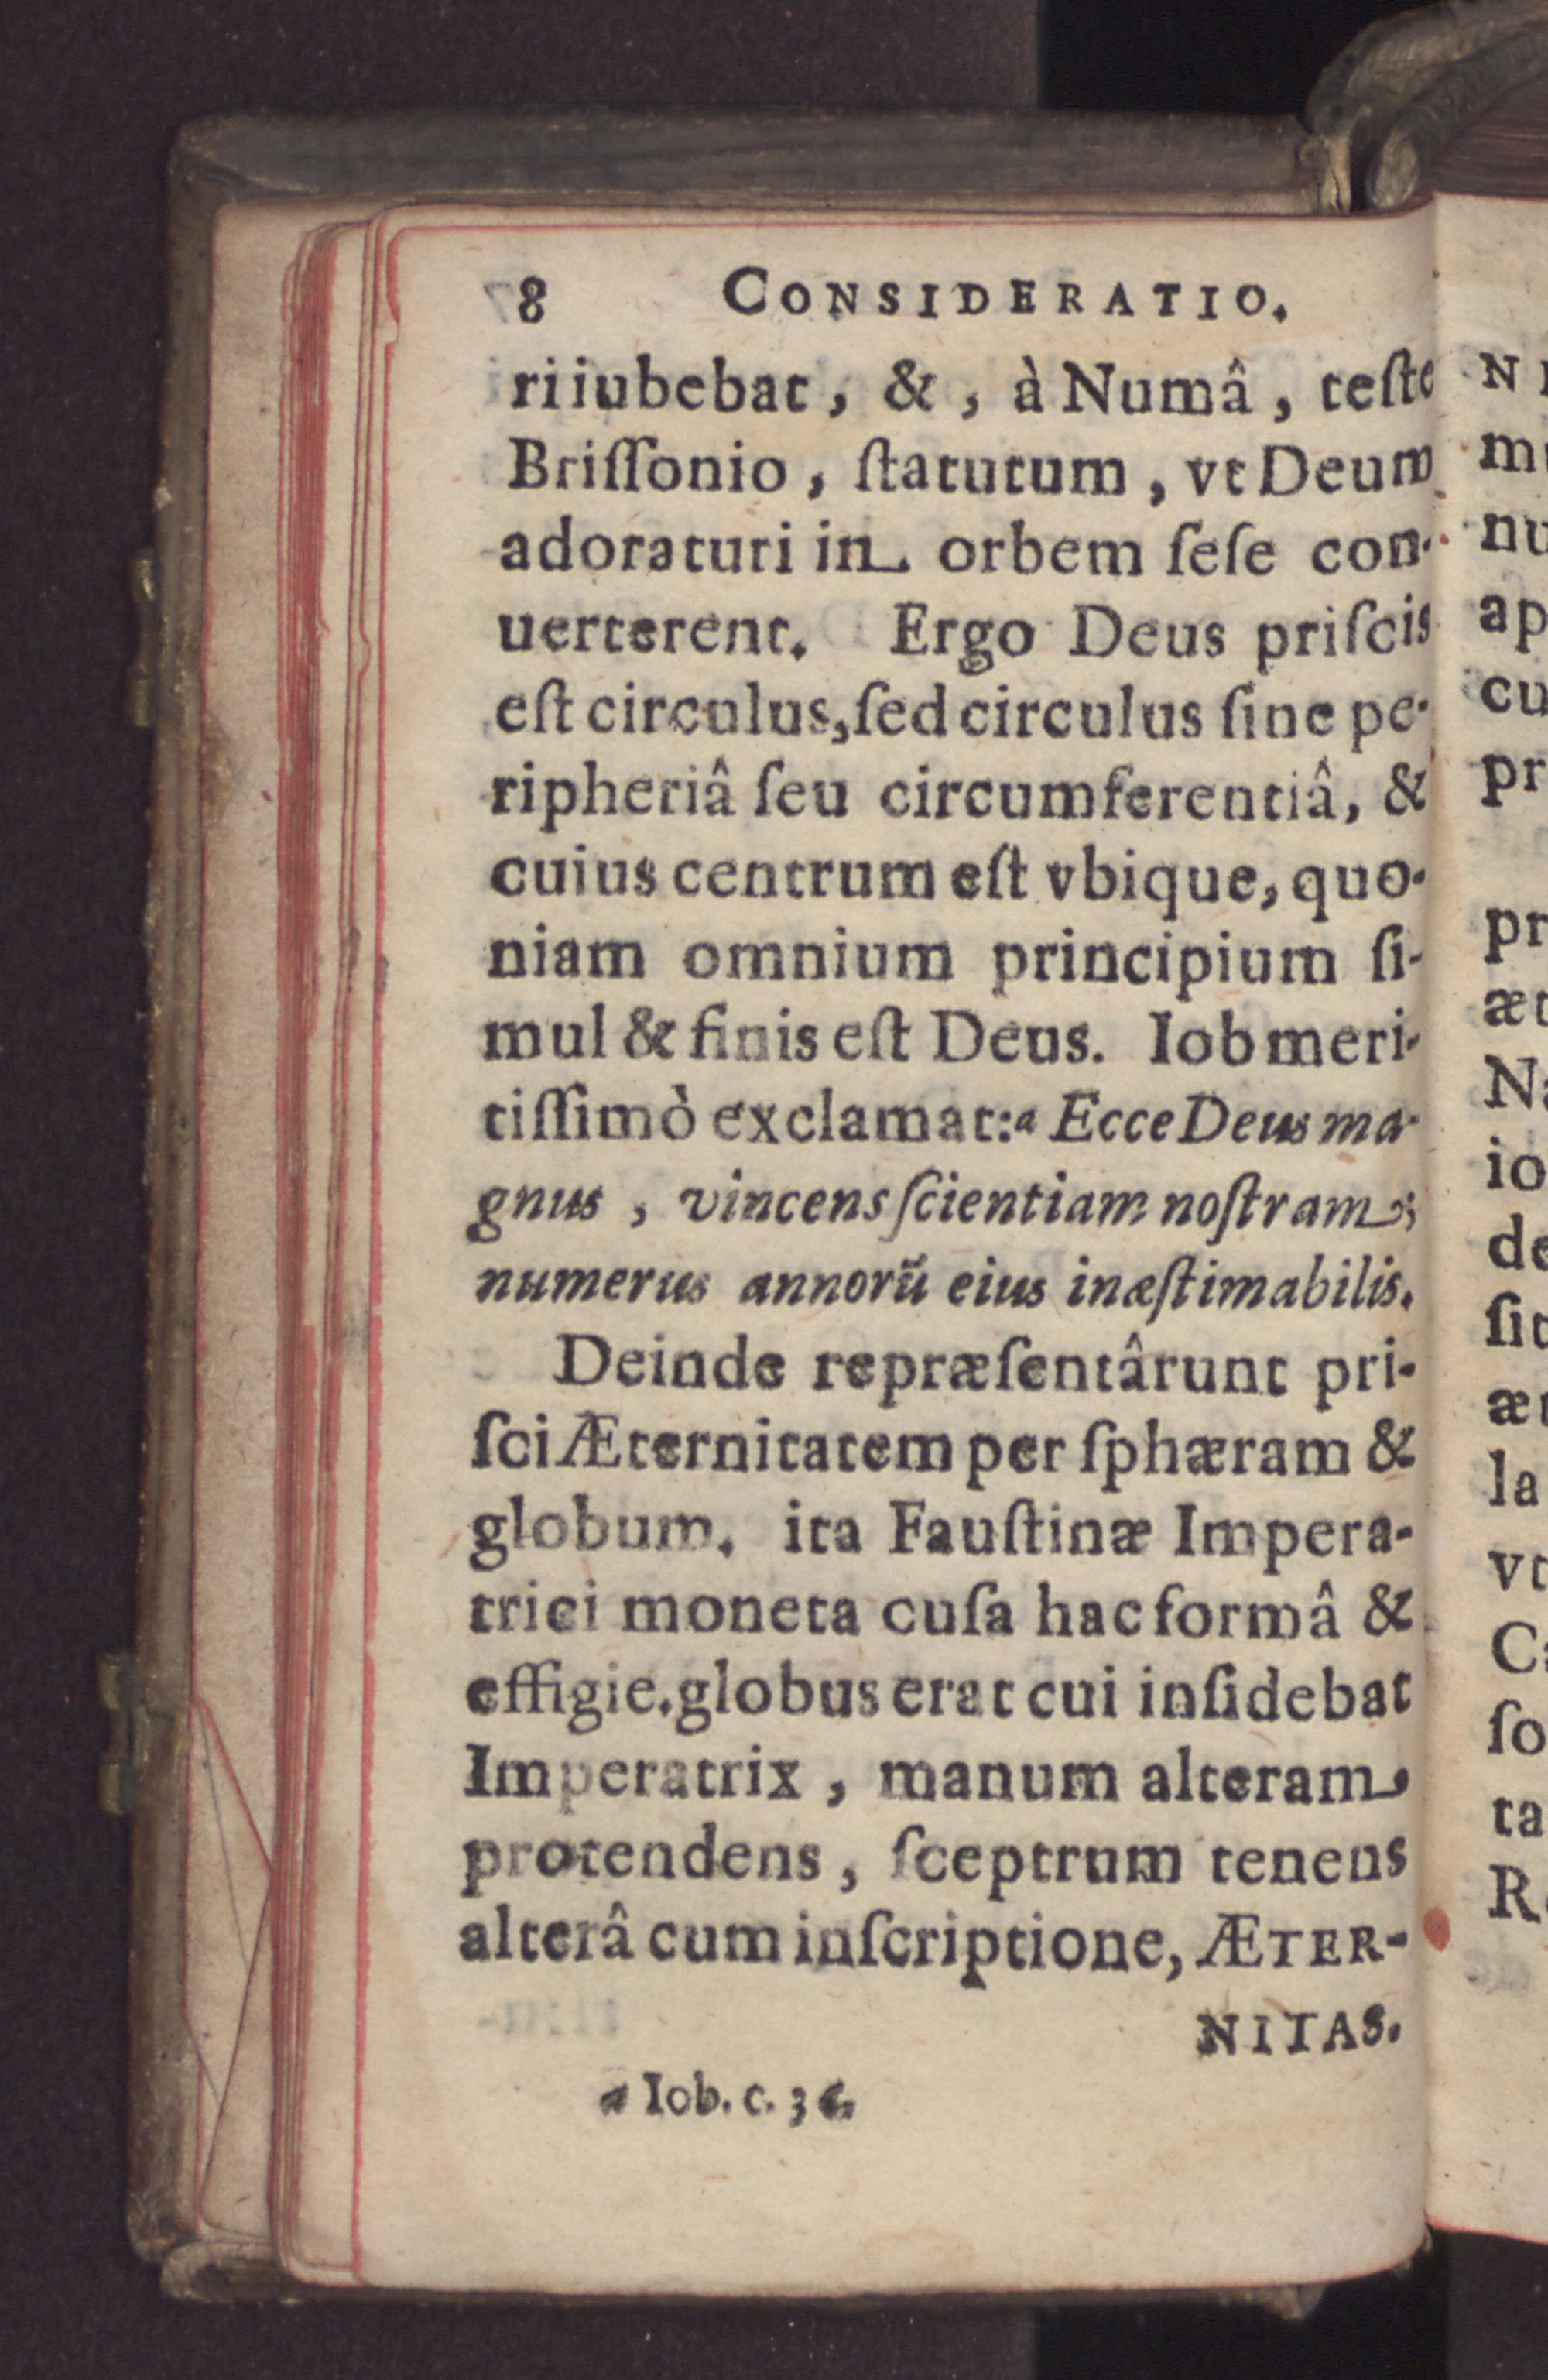 8 CONSIDERATIO.
ri iubebat, &, à Numâ, teſte
Briſſonio, ſtatutum, vt Deum
adoraturi in orbem ſeſe con-
uerterent. Ergo Deus priſcis
eſt circulus, ſed circulus ſine pe-
ripheriâ ſeu circumferentiâ, &
cuius centrum eſt vbique, quo-
niam omnium principium ſi-
mul & finis eſt Deus. Iob meri-
tiſſimò exclamat:a Ecce Deus ma-
gnus, vincens ſcientiam noſtram;
numerus annorũ eius inæſtimabilis.
Deinde repræſentârunt pri-
ſci Æternitatem per ſphæram &
globum. ita Fauſtinæ Impera-
trici moneta cuſa hac formâ &
effigie. globus erat cui inſidebat
Imperatrix, manum alteram
protendens, ſceptrum tenens
alterâ cum inſcriptione, ÆTER-
NITAS.
a Iob. c. 36.